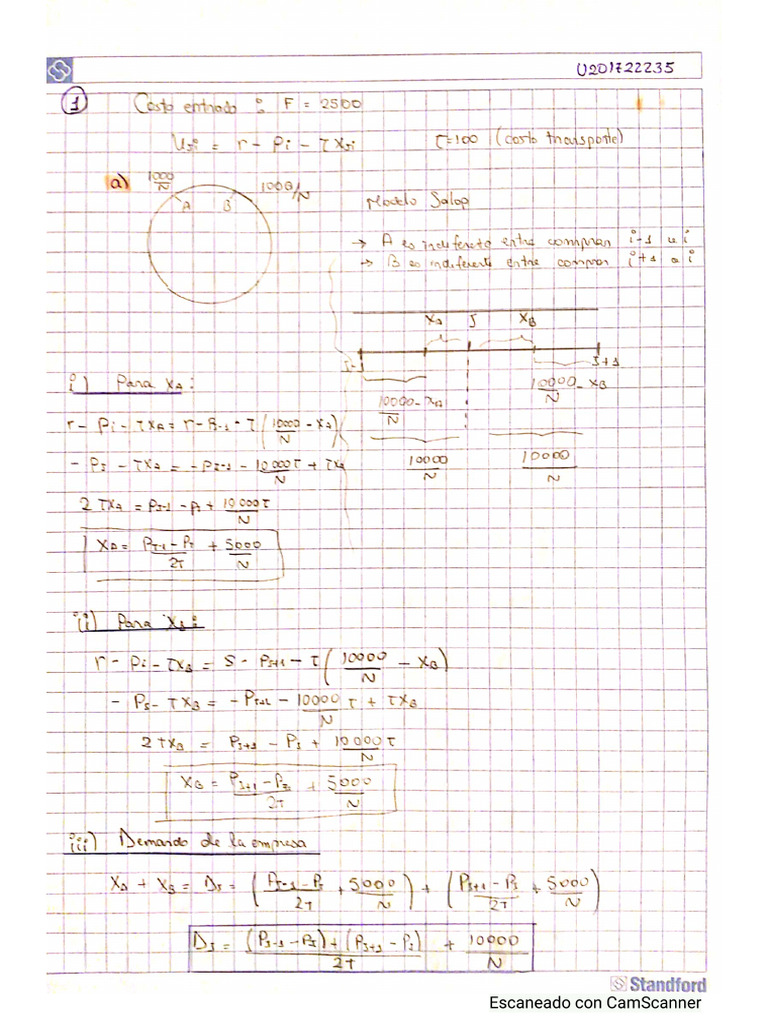 U201722235
1 Costo entrada : F = 2500
Uji = r - Pi - TXji T=100 (costo transporte)
a) 1000/N A B 1000/N Modelo Salop
→ A es indiferete entre comprar i-1 u i
→ B es indiferente entre comprar i+1 o i
XA J XB
J-1 J+1
10000/N - XA 10000/N - XB
10000/N 10000/N
i) Para XA:
r - Pi - TXA = r - Pi-1 - T(10000/N - XA)
- PJ - TXA = - PJ-1 - 10000T/N + TXA
2TXA = PJ-1 - PJ + 10000T/N
XA = PJ-1 - PJ/2T + 5000/N
ii) Para XB:
r - Pi - TXB = S - PJ+1 - T(10000/N - XB)
- PJ - TXB = - PJ+1 - 10000/N T + TXB
2TXB = PJ+1 - PJ + 10000T/N
XB = PJ+1 - PJ/2T + 5000/N
iii) Demanda de la empresa
XA + XB = DJ = (PJ-1 - PJ/2T + 5000/N) + (PJ+1 - PJ/2T + 5000/N)
DJ = (PJ-1 - PJ) + (PJ+1 - PJ)/2T + 10000/N
Standford
Escaneado con CamScanner